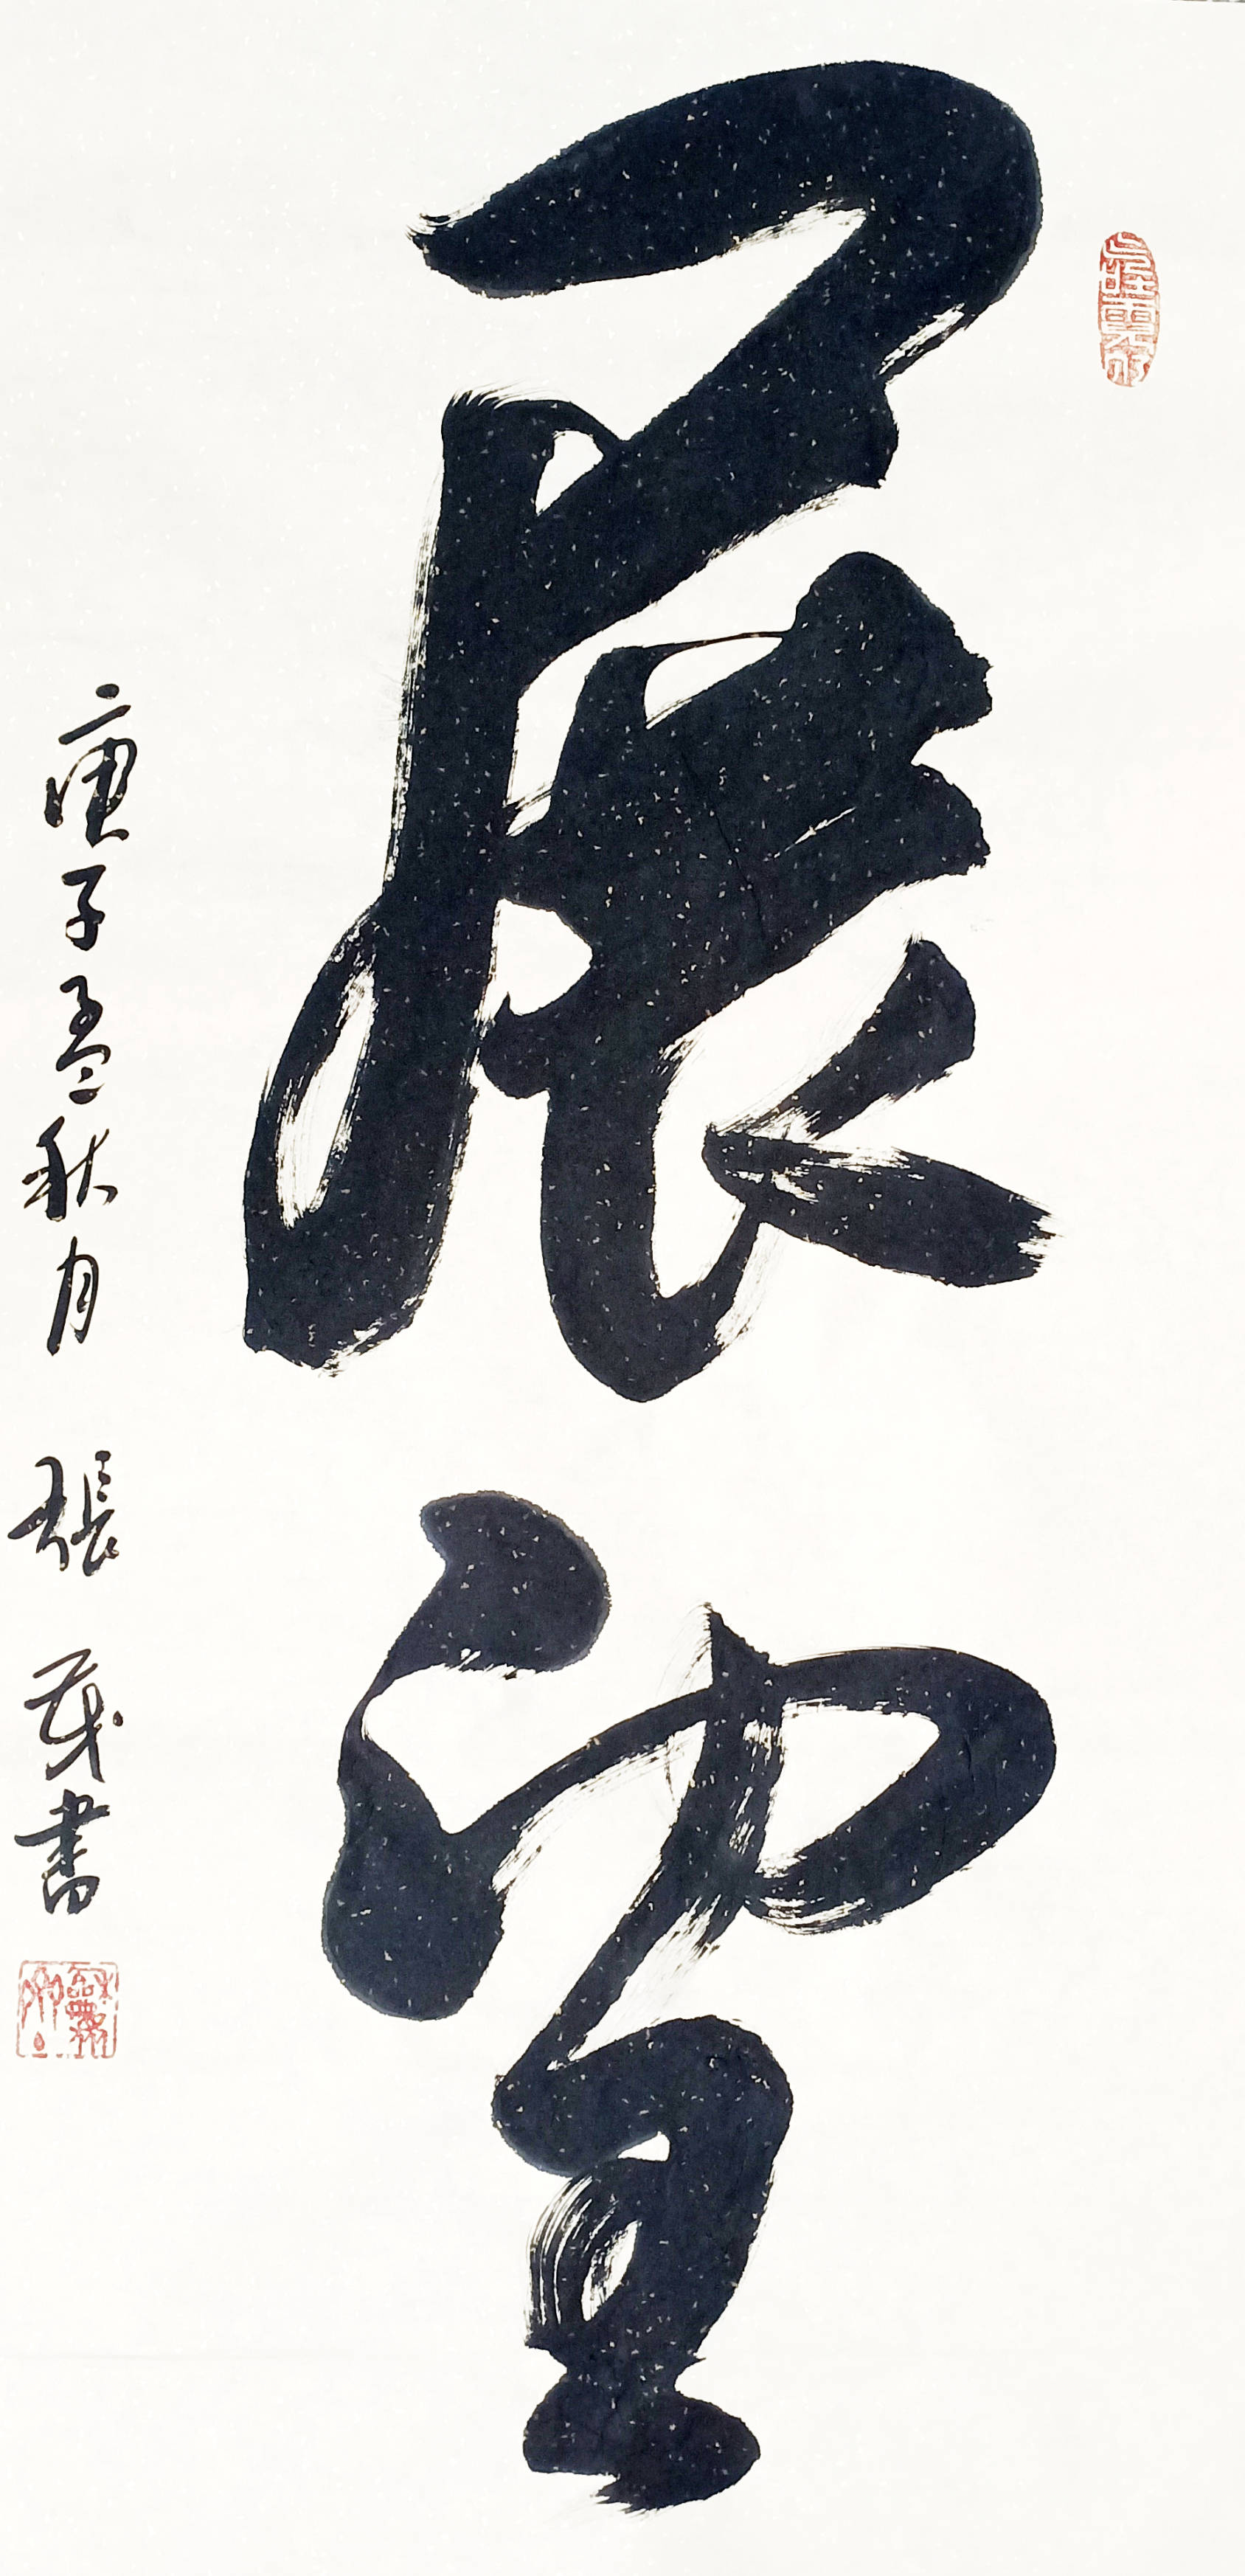 展望
庚子孟秋月 張茂書